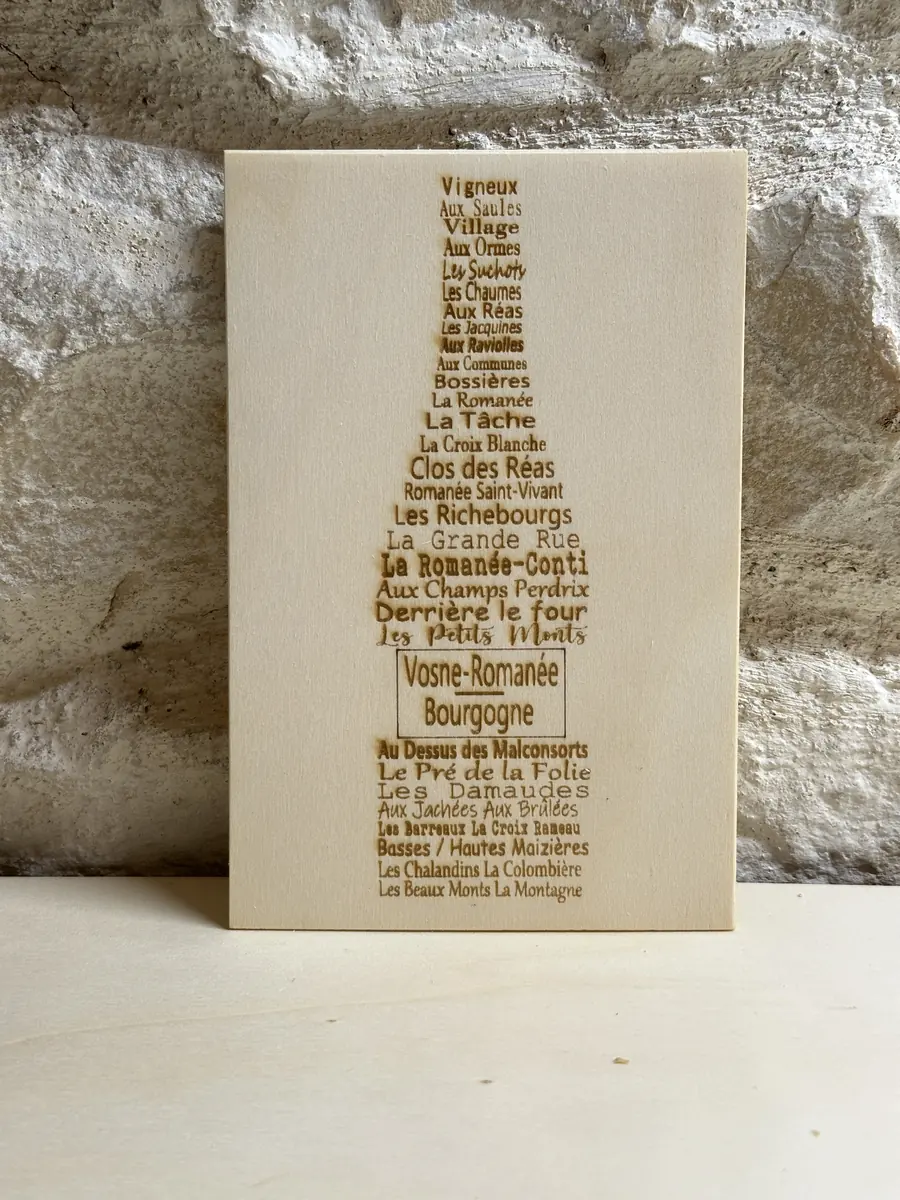 Vigneux
Aux Saules
Village
Aux Ormes
Les Suchots
Les Chaumes
Aux Réas
Les Jacquines
Aux Raviolles
Aux Communes
Bossières
La Romanée
La Tâche
La Croix Blanche
Clos des Réas
Romanée Saint-Vivant
Les Richebourgs
La Grande Rue
La Romanée-Conti
Aux Champs Perdrix
Derrière le four
Les Petits Monts
Vosne-Romanée
Bourgogne
Au Dessus des Malconsorts
Le Pré de la Folie
Les Damaudes
Aux Jachées Aux Brûlées
Les Barreaux La Croix Rameau
Basses / Hautes Maizières
Les Chalandins La Colombière
Les Beaux Monts La Montagne